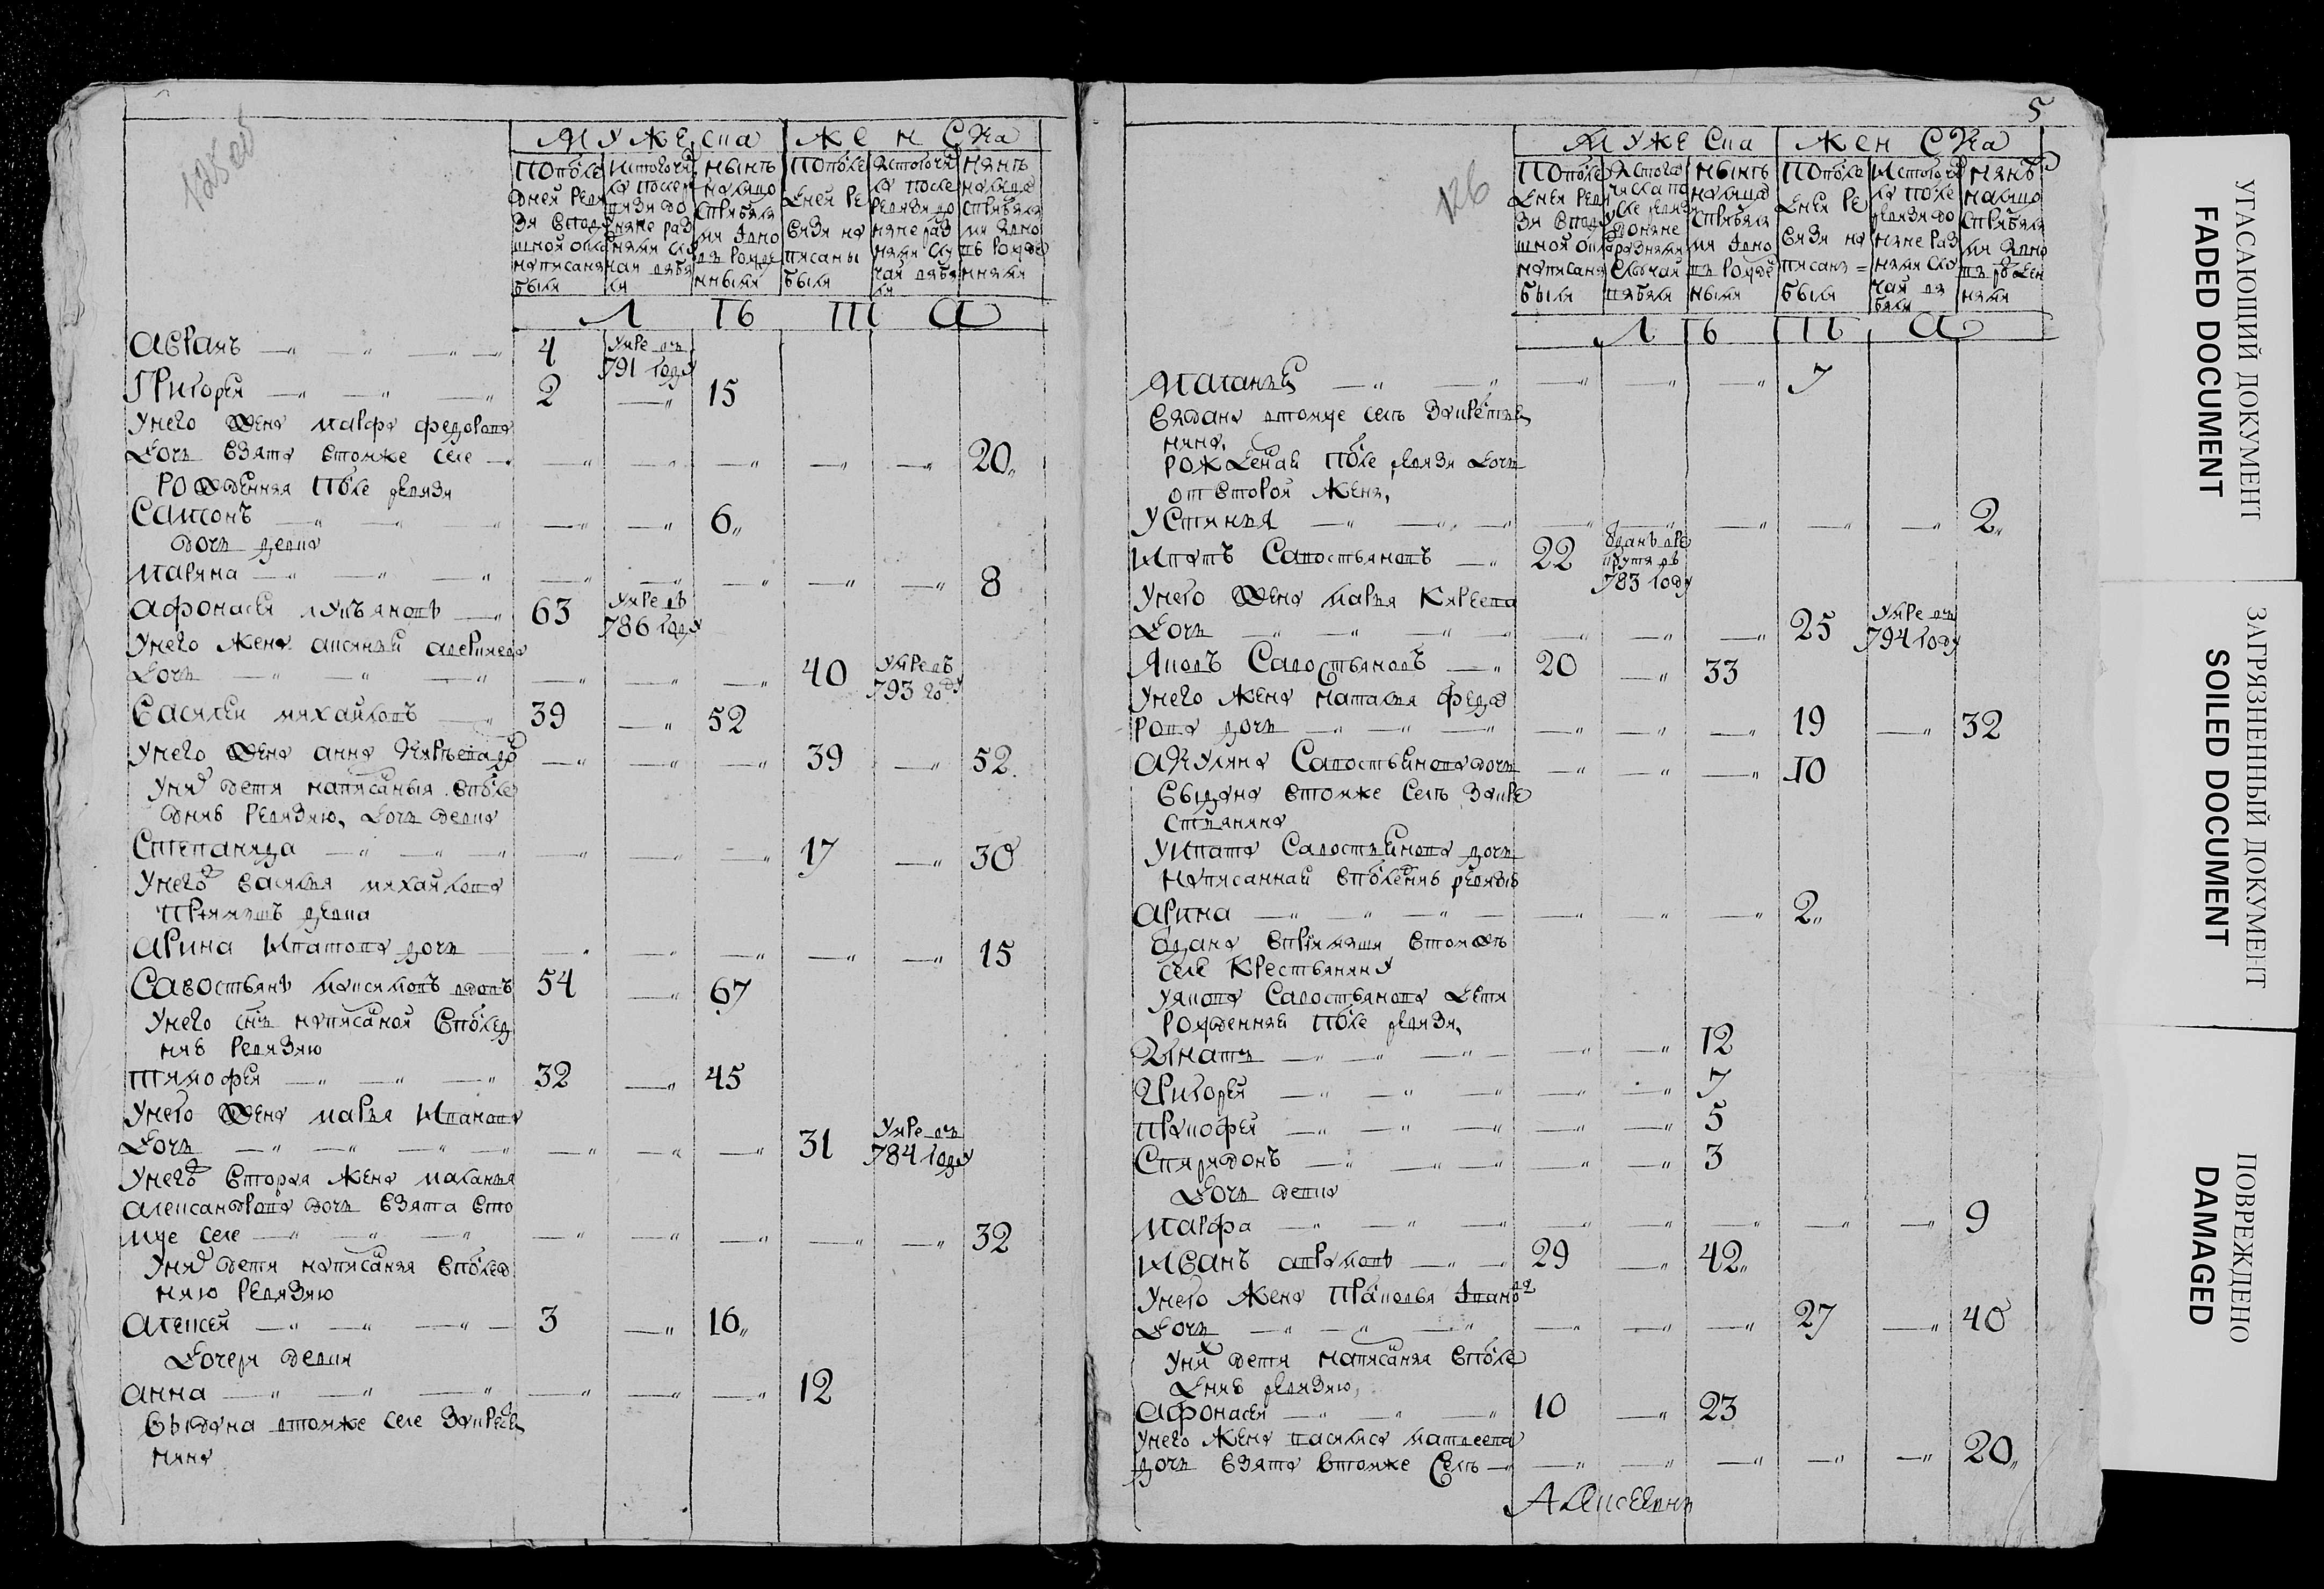 125 об
МУЖЕСКА ЖЕНСКА
По после дней ревизи в подушной окла написаня были
Ис того числа после ревизи до ныне разными случаи выбыли
Ныне на лицо с прибылми и вновь рожденными
По последней ревизи на писаны были
Ис того числа после ревизи до ныне разными случаи выбыли
Ныне на лицо с прибылими и вновь рожденними
Л Т Ь Ш А
Авранъ 4 умре въ 791 году
Григорей 2 15
У него жена марфа федорова
дочь взята в томже селе 20
рожденная после ревизи
Самсонъ 6
дочь девка
Марина 8
Афонасей лукьяновъ 63 умре въ 786 году
У него жена аксинья алексеева
дочь 40 умре въ 793 году
Василей михайловъ 39 52
У него жена анна
39 52
У них дети написаныя в после
днею ревизию, дочь девка
Степанида 17 30
У него василья михайлова
приимышъ девка
Арина Ипатова дочь 15
Савостьянъ максимовъ вдовъ 54 67
У него сынъ написаной в послед
нею ревизию
Тимофей 32 45
У него жена марья Иванова
дочь 31 умре въ 784 году
У него вторая жена маланья
александрова дочь взята в то
мже селе 32
У них дети написаная в послед
нюю ревизию
Алексей 3 16
дочери девки
Анна 12
выдана в томже селе за крестья
нина
5
126
МУЖЕСКА ЖЕНСКА
По последней ревизи в подушной окла написаня были
Ис того числа после ревизи до ныне разными случаи выбыли
Ныне на лицо с прибылми и вновь рожденными
По последней ревизи на писаны были
Ис того числа после ревизи до ныне разними случаи выбыли
Ныне на лицо с прибылими и вновь рожденними
Л Т Ь Ш А
Маланья 7
выдана в томже селе за крестья
нина,
рожденая после ревизи дочь
от второй жены,
Устинья 2
Ипатъ Савостьяновъ 22 отданъ в рекруты въ 783 году
У него жена марья
дочь 25 умре въ 794 году
Яковъ Савостьяновъ 20 33
У него жена наталья федо
рова дочь 19 32
Акулина Савостьянова дочь 10
выдана в томже селе за кре
стьянина
У Ипата Савостьянова дочь
написанная в последнею ревизию
Арина 2
отдана в приимыши в томже
селе крестьянину
У якова Савостьянова дети
рожденныя после ревизи,
Игнатъ 12
Григорей 7
Прокофей 5
Спиридонъ 3
дочь девка
Марфа 9
Иванъ 29 42
У него жена прасковья
дочь 27 40
У них дети написаная в после
днею ревизию,
Афонасей 10 23
У него жена василиса матвеева
дочь взята в томже селе 20
УГАСАЮЩИЙ ДОКУМЕНТ
FADED DOCUMENT
ЗАГРЯЗНЕННЫЙ ДОКУМЕНТ
SOILED DOCUMENT
ПОВРЕЖДЕНО
DAMAGED